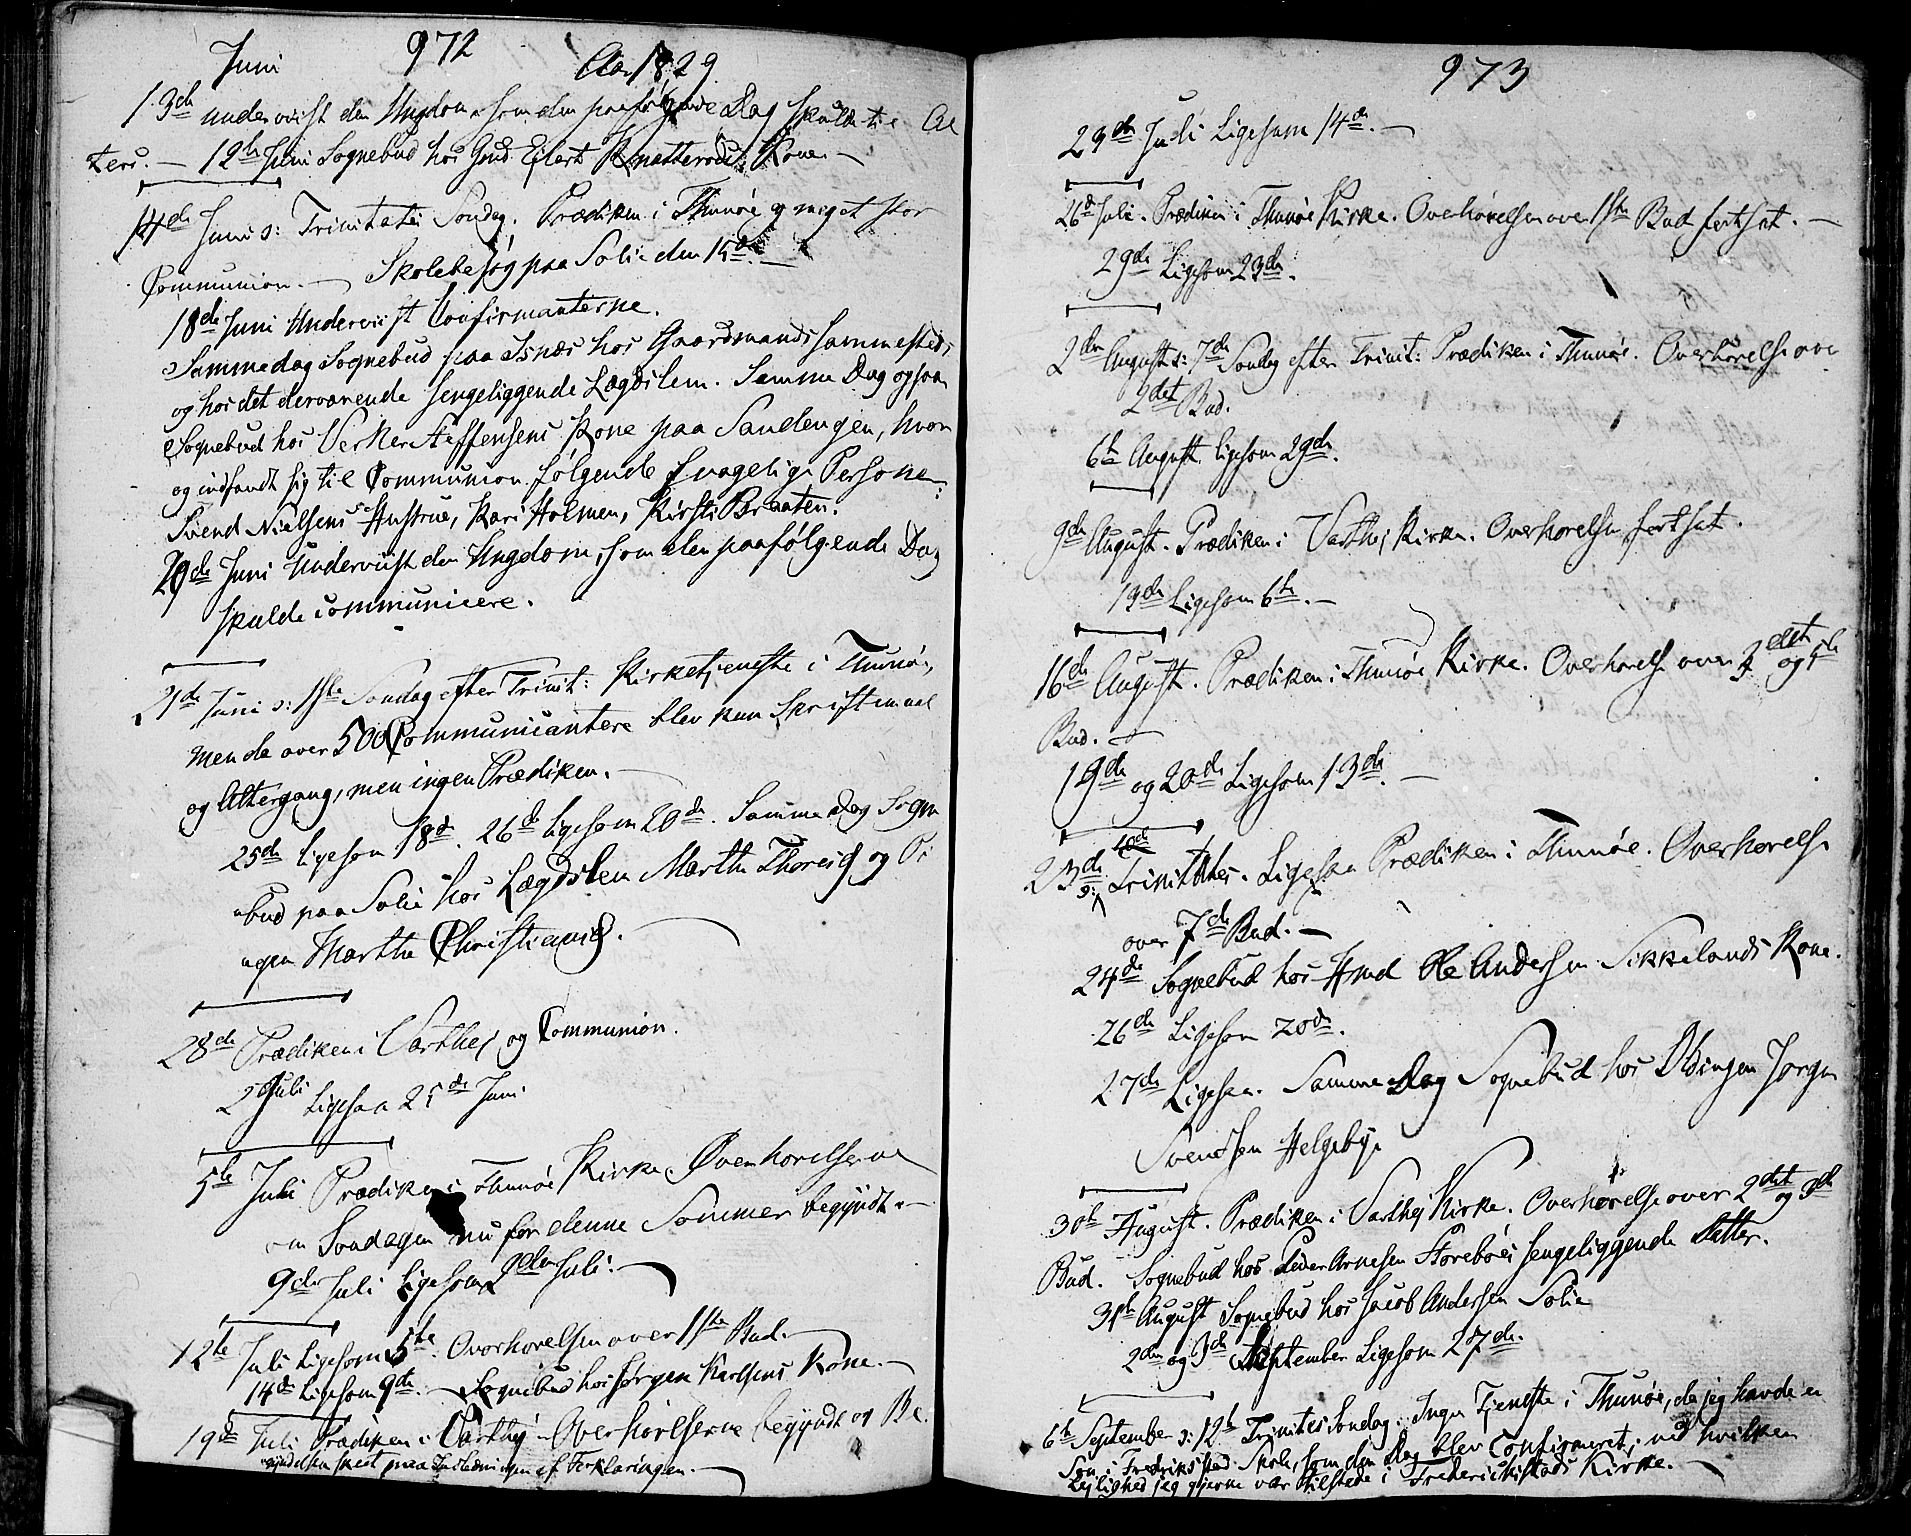 Juni 972 Aar 1829
13de underviist den Ungdom, som den paafølgende Dag skulde til Al
ters. — 12te Juni Sognebud hos Gmd. Ejlert Knatterøds Kone. —
14de Juni ɔ: Trinitatis Søndag. Prædiken i Thunøe og meget stor
Communion. — Skolebesøg paa Solie den 15de. —
18de Juni Underviist Confirmanterne.
Samme dag Sognebud paa Isnæs hos Gaardmands sammesteds
og hos det derværende sengeliggende Lægdslem. Samme Dag ogsaa
Sognebud hos Verker Steffensens Kone paa Sandengen, hvor
og indfandt sig til Communion følgende svagelige Personer:
Svend Nielsens Hustrue, Kari Holmen, Kirsti Braaten.
20de Juni Underviist den Ungdom, som den paafølgende Dag
skulde communicere.
21de Juni ɔ: 1ste Søndag efter Trinit: Kirketjeneste i Thunøe,
men da over 500 Communicantere blev kun Skriftemaal
og Altergang, men ingen Prædiken. —
25de ligesom 18de. 26de ligesom 20de. Samme Dag Sogne
bud paa Solie hos Lægdslem Marthe Thoresd og Pi
gen Marthe Christiansd. —
28de Prædiken i Varthej og Communion.
2 Juli Ligesaa 25de Juni
5te Juli Prædiken i Thunøe Kirke. Overhørelserne
om Søndagen nu for denne Sommer begyndt. —
9de Juli Ligesom 2den Juli. —
12te Juli Ligesom 5te. Overhørelsen over 1ste Bud. —
14de Ligesom 9de. — Sognebud hos Jørgen Karlsens Kone. —
19de Juli Prædiken i Varthej. Overhørelserne begyndt og Be-
gyndelsen skeet paa Indledningen af Forklaringen. —
973
23de Juli Ligesom 14de. —
26de Juli. Prædiken i Thunøe Kirke. Overhørelsen over 1ste Bud fortsat. —
29de Ligesom 23de.
2den August ɔ: 7de Søndag efter Trinit: Prædiken i Thunøe. Overhørelse over
2det Bud.
6te August ligesom 29de.
9de August. Prædiken i Varthej Kirke. Overhørelsen fortsat.
13de Ligesom 6te. —
16de August. Prædiken i Thunøe Kirke. Overhørelse over 3det og 4de
Bud. —
19de og 20de Ligesom 13de. —
23de ɔ: 10de Trinitates. Ligesaa Prædiken i Thunøe. Overhørelse
over 7de Bud. —
24de Sognebud hos Hmd Ole Andersen Sikkelands Kone.
26de Ligesom 20de.
27de Ligesaa. Samme Dag Sognebud hos Jørgen
Svendsen Helgeby.
30te August. Prædiken i Varthej Kirke. Overhørelse over 2det og 3de
Bud. Sognebud hos Peder Arnesen Storebøes sengeliggende Datter.
31te August Sognebud hos Jacob Andersen Solie
2den og 3de September Ligesom 27de.
6te September ɔ: 12te Trinites Søndag. Ingen Tjeneste i Thunøe, da jeg havde en
Søn i Fredriksstad Skole, som den Dag blev Confirmeret, ved hvilken
Lejlighed jeg gjerne var tilstede i Frederichstads Kirke. —